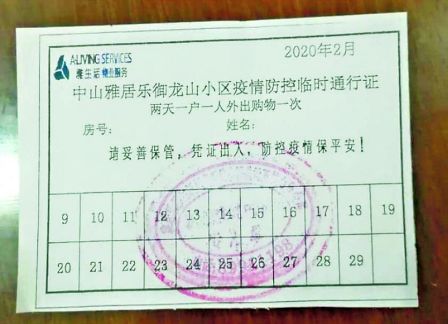 A-LIVING SERVICES
雅生活 物业服务
2020年2月
中山雅居乐御龙山小区疫情防控临时通行证
两天一户一人外出购物一次
房号: 姓名:
请妥善保管，凭证出入，防控疫情保平安！
9 10 11 12 13 14 15 16 17 18 19
20 21 22 23 24 25 26 27 28 29